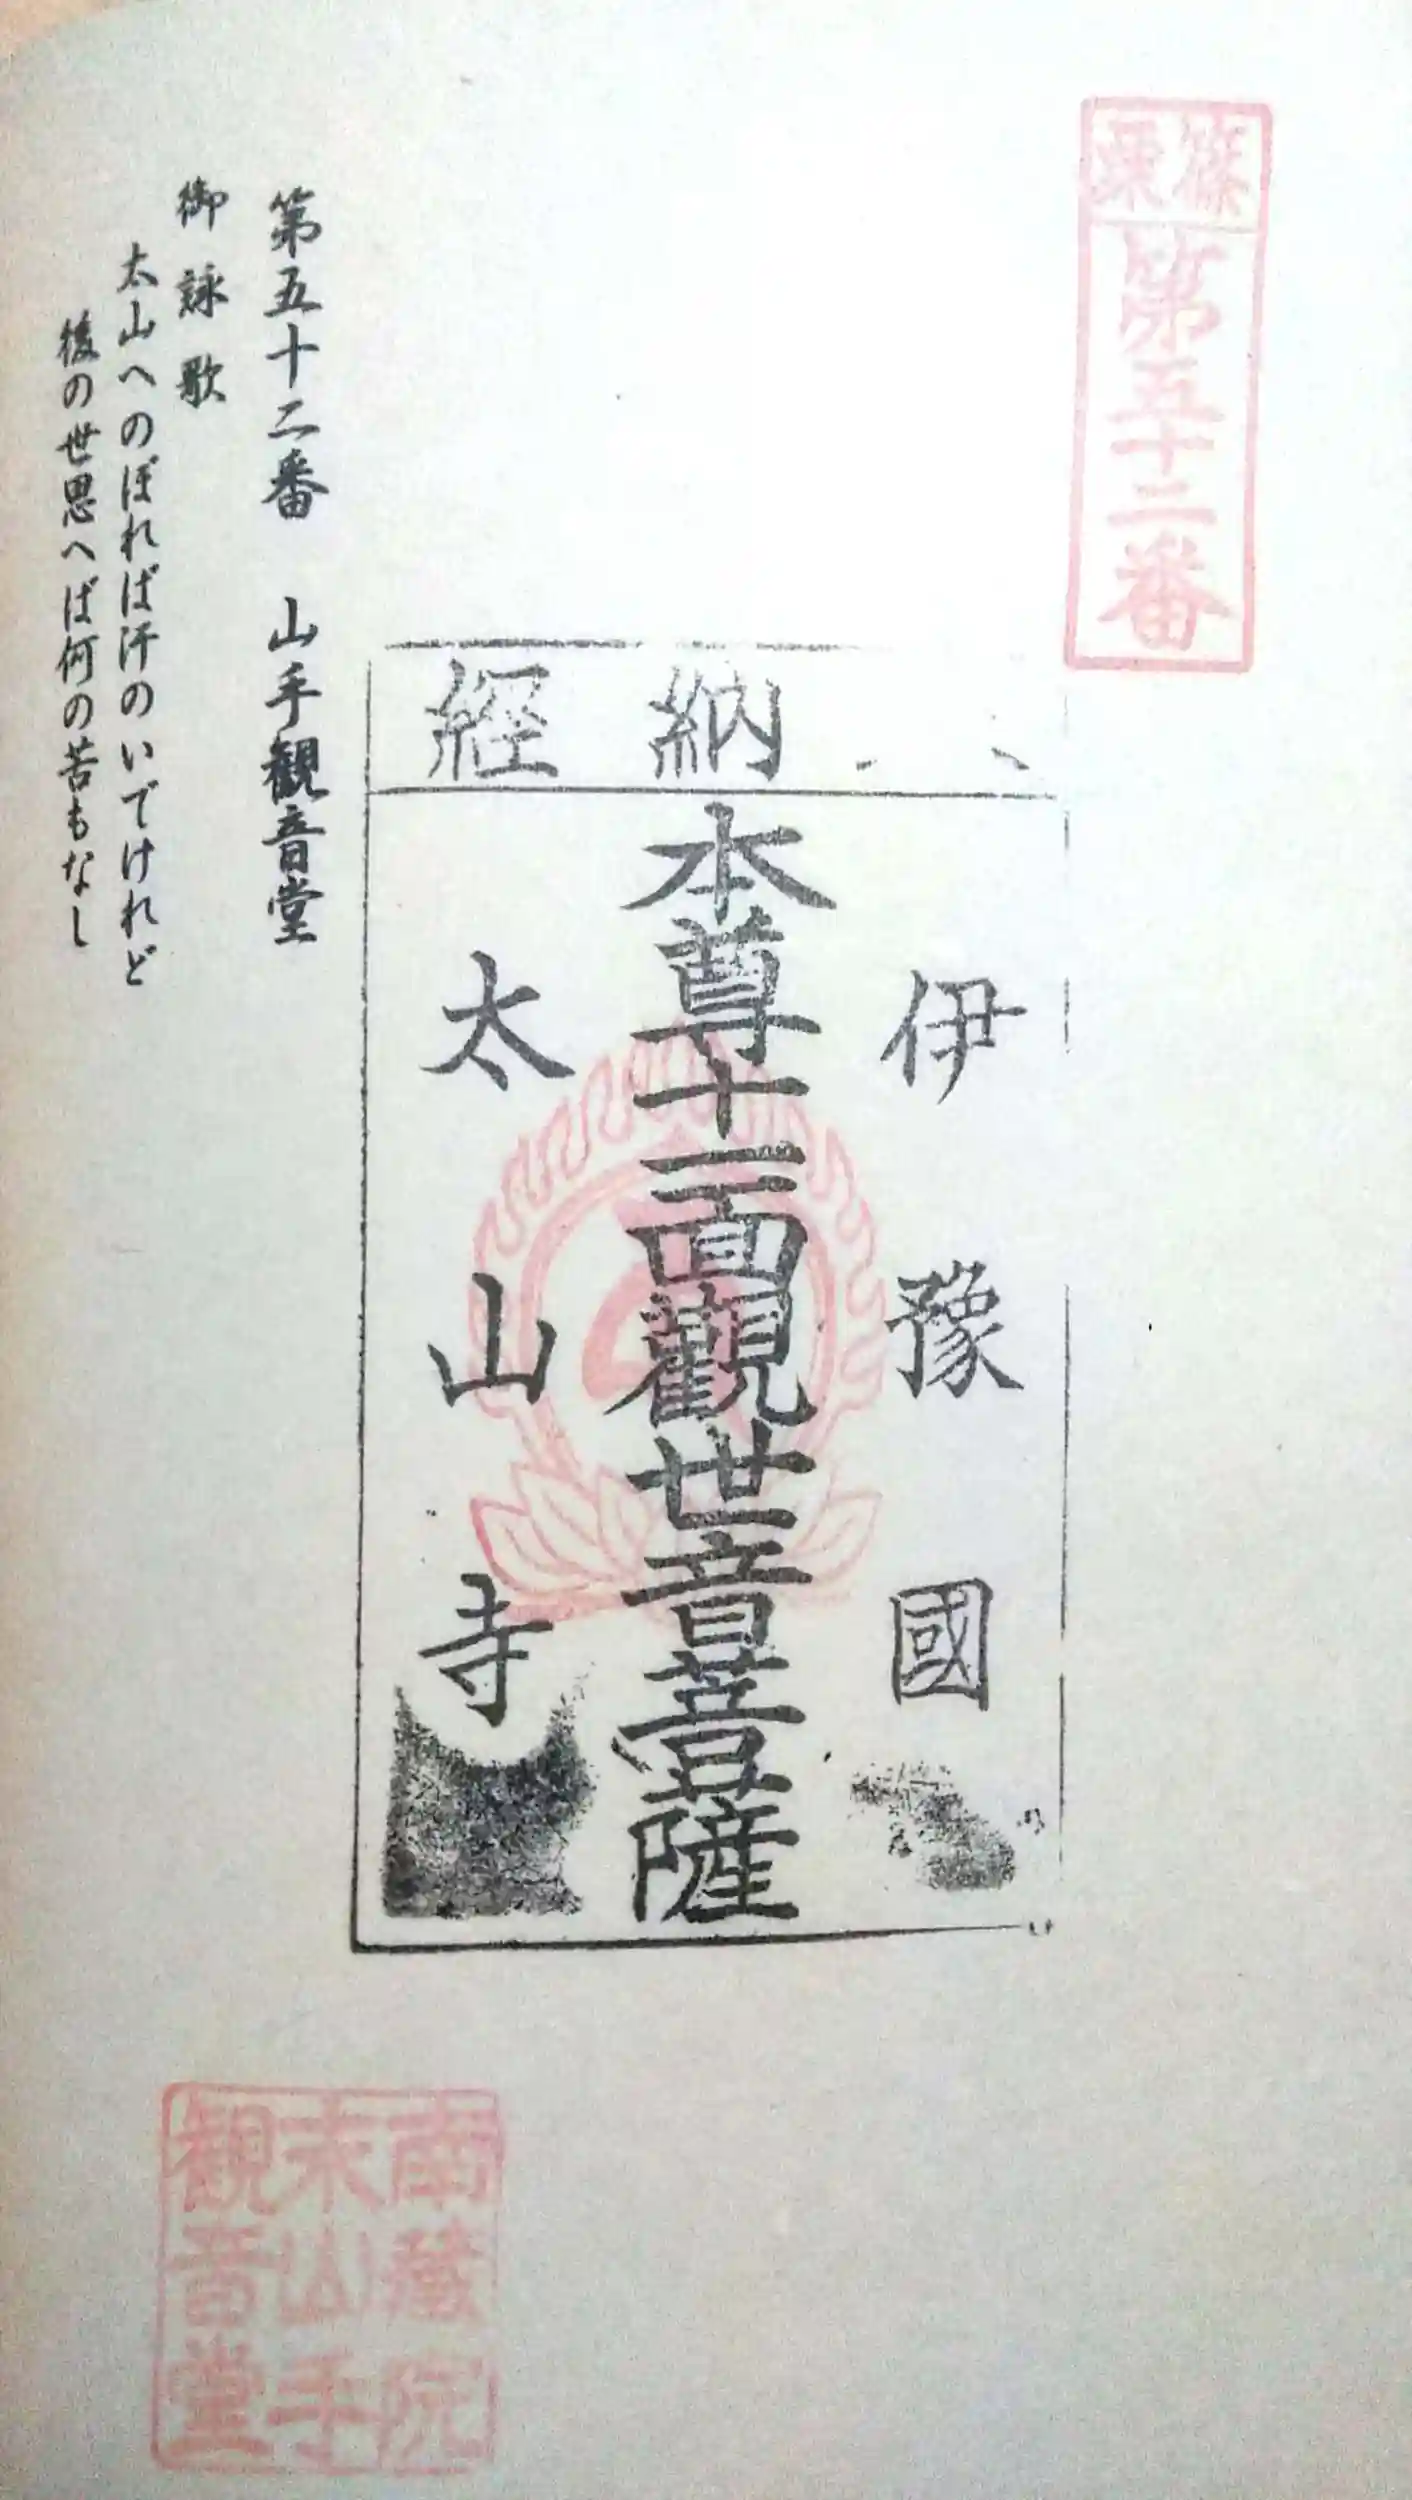 篠栗
第五十二番
納経
伊豫國
本尊十一面觀世音菩薩
太山寺
第五十二番 山手観音堂
御詠歌
太山へのぼれば汗のいでけれど
後の世思へば何の苦もなし
南蔵院
末山手
観音堂